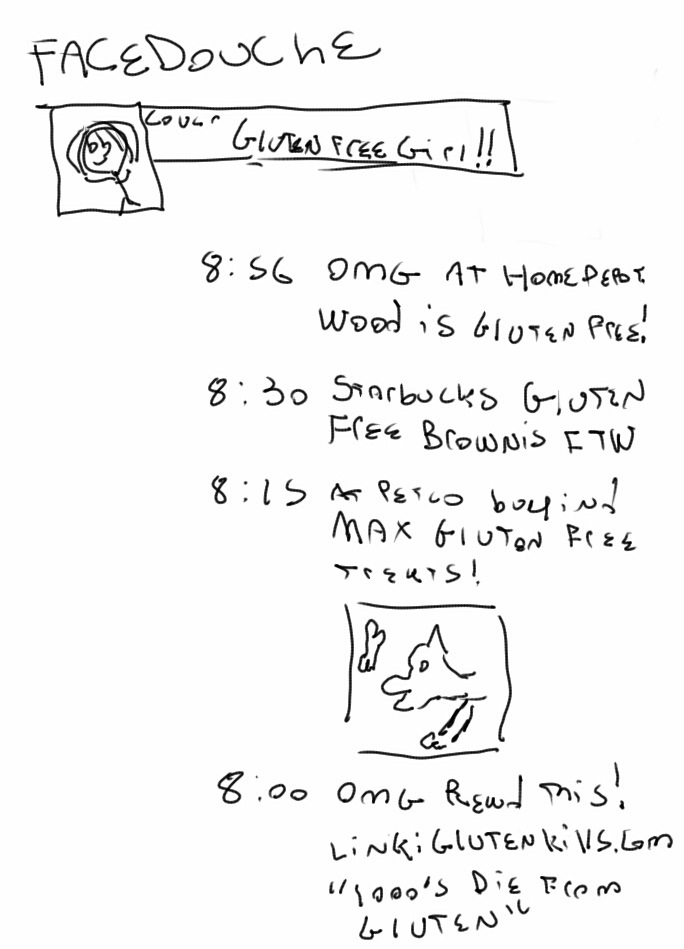 FACEDOUCHE
COVER
GLUTEN FREE GIRl!!
8:56 OMG AT HOMEDEPOT.
WOOD iS GLUTEN FREE!
8:30 STARBUCKS GLUTEN
FREE BROWNiS FTW
8:15 AT PETCO buying
MAX GLUTEN FREE
TREATS!
8:00 OMG READ THiS!
LiNK:GLUTENKillS.Com
"1000'S DiE FROM
GLUTEN"